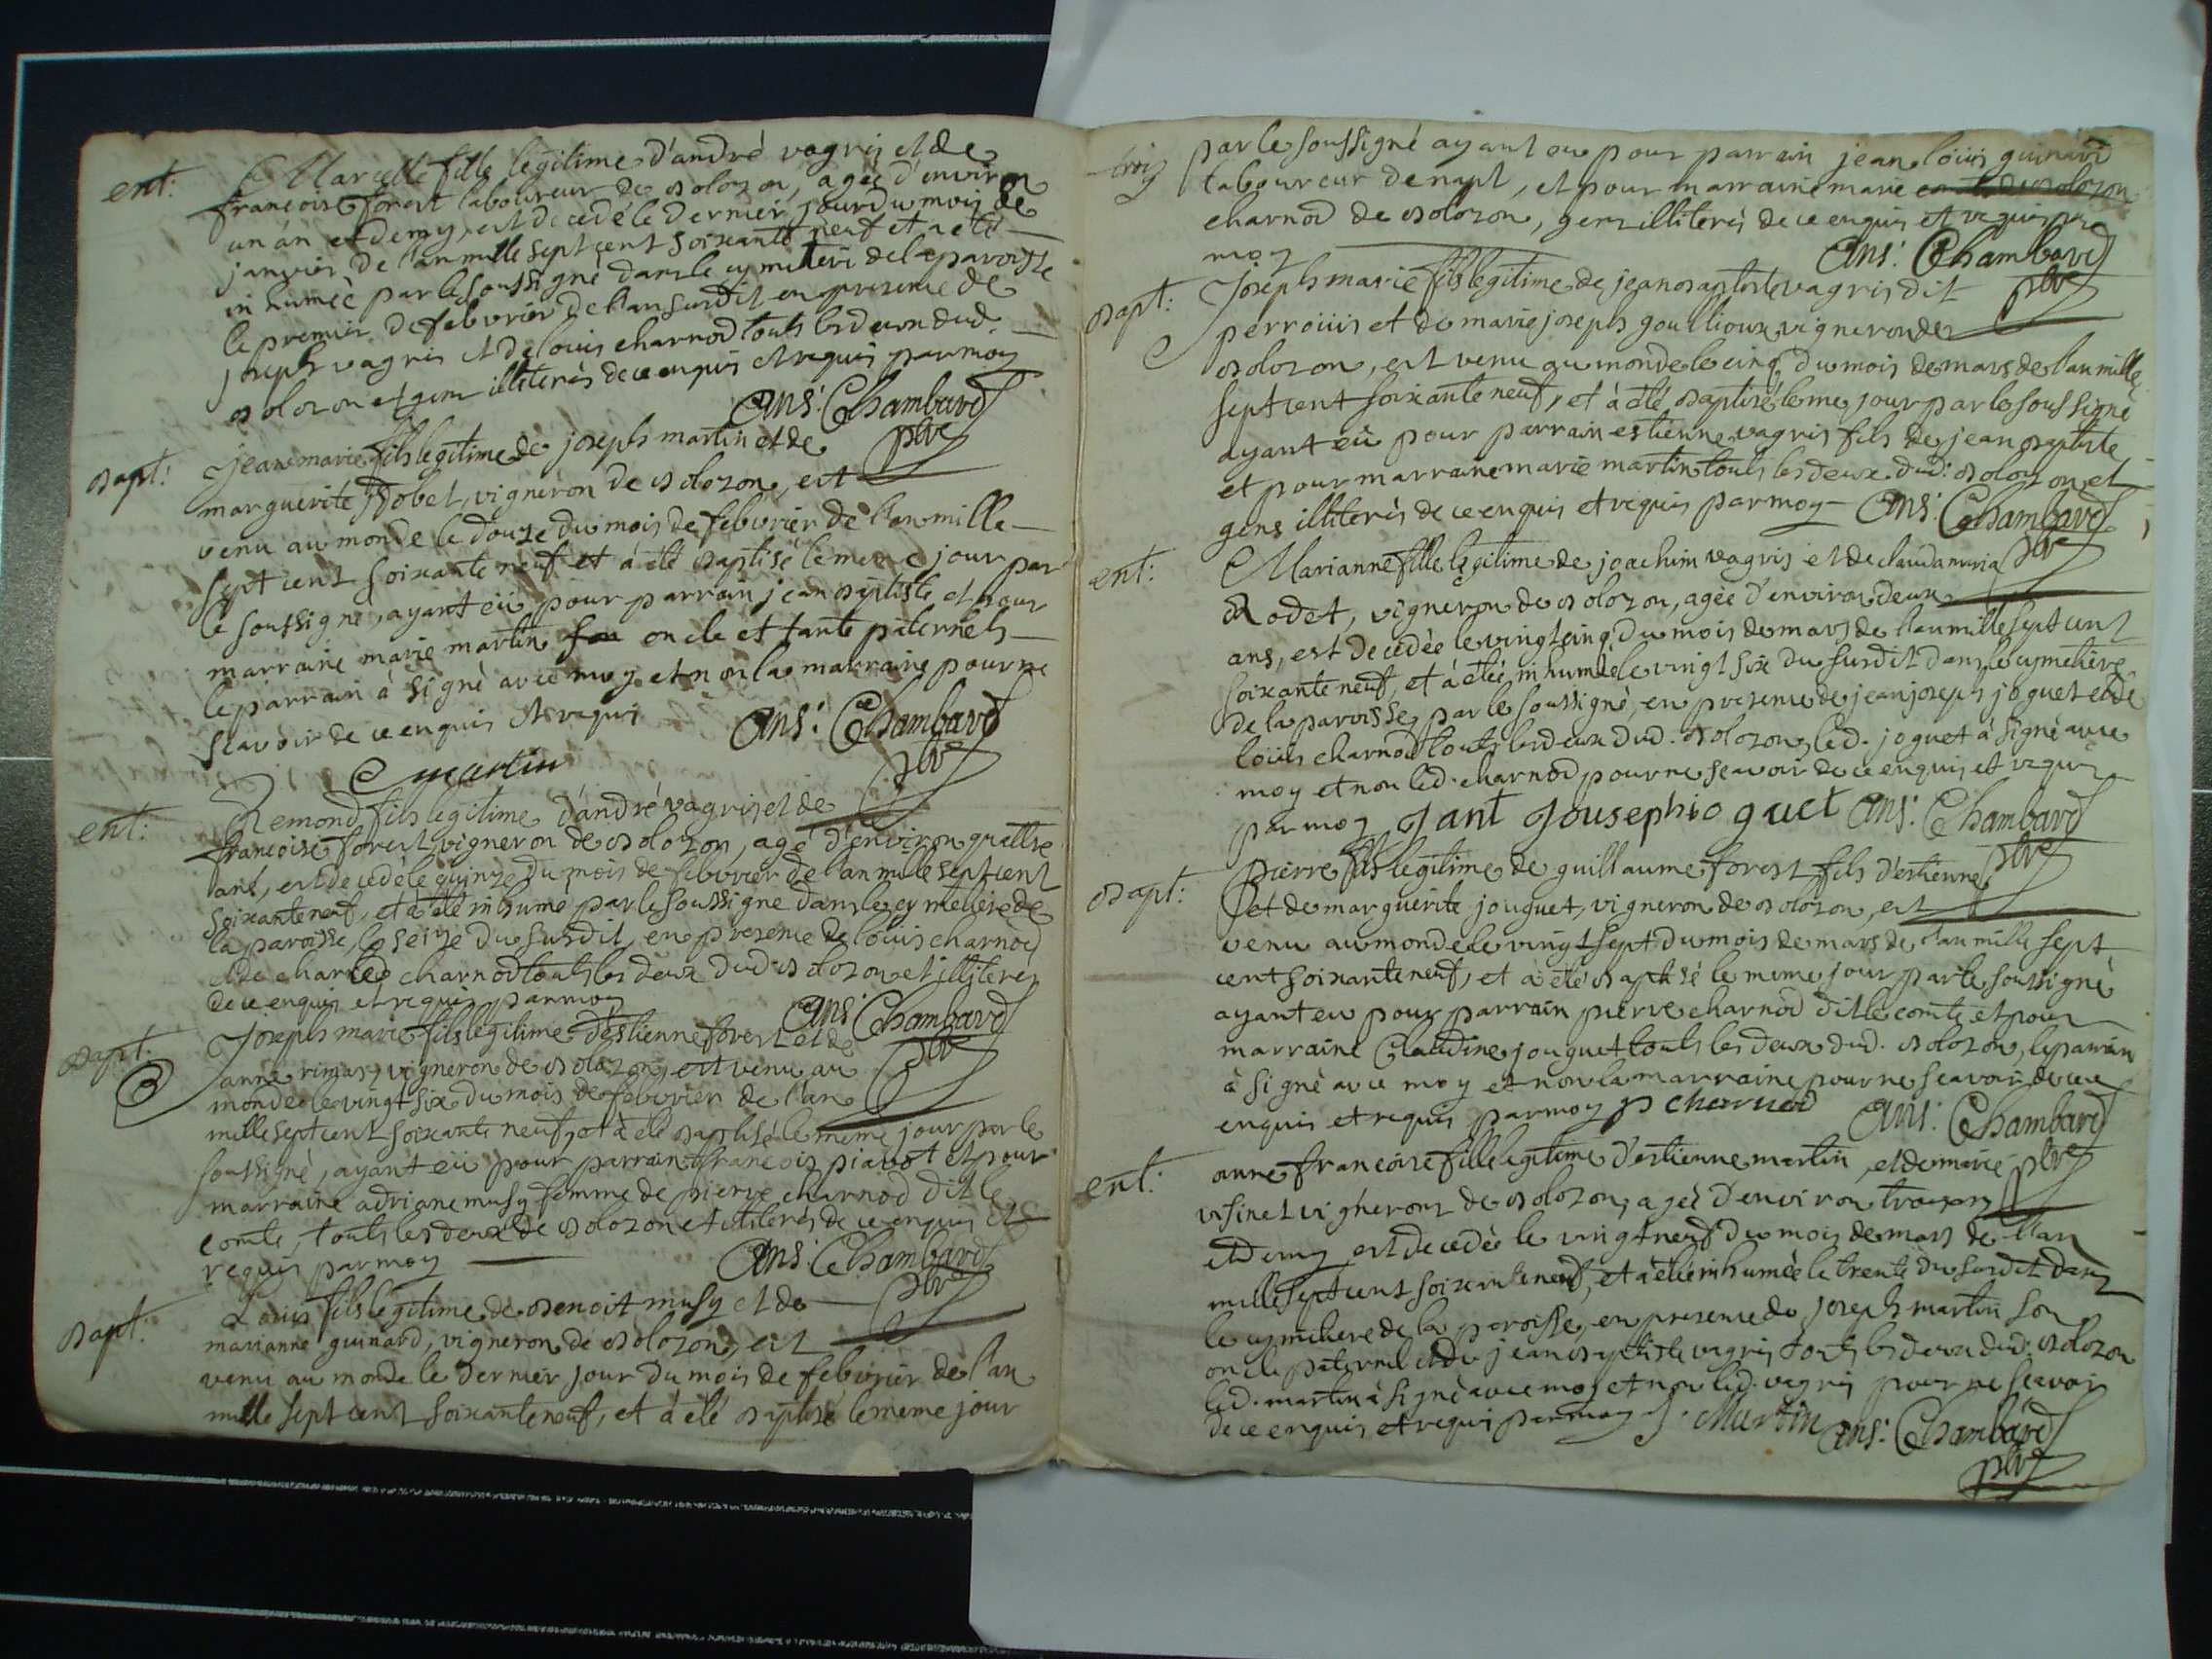 ent:
Marcelle fille legitime d'andré vagris et de
francoise forest laboureur de Bolozon, agée d'environ
un an et demy, est decedé le dernier jour du mois de
janvier de l'an mille sept cent soixante neuf et a eté
inhumée par le soussigné dans le cymitere de la paroisse
le premier de febvrier de l'an susdit en presence de
joseph vagris et de louis charnod touts les deux dud.
Bolozon et gens illiterés de ce enquis et requis par moy
Ans: Chambard
pbre
Bapt:
jean marie fils legitime de joseph martin et de
marguerite Robet, vigneron de Bolozon, est
venu au monde le douze du mois de febvrier de l'an mille
sept cent soixante neuf et à été Baptisé le meme jour par
le soussigné, ayant eü pour parrain jean Baptiste et pour
marraine marie martin oncle et tante paternels
le parrain à signé avec moy et non la marraine pour ne
scavoir de ce enquis et requis
Ans: Chambard
pbre
martin
ent:
Remond fils legitime d'andré vagris et de
francoise forest vigneron de Bolozon, agé d'environ quattre
ans, est decedé le quinze du mois de febvrier de l'an mille sept cent
soixante neuf, et à été inhumé par le soussigné dans le cymetiere de
la paroisse, le seize du susdit, en presence de louis charnod
et de charles charnod touts les deux dud. Bolozon et illiterés
de ce enquis et requis par moy
Ans: Chambard
pbre
Bapt:
Joseph marie fils legitime d'estienne forest et de
anne rimas, vigneron de Bolozon, est venu au
monde le vingt six du mois de febvrier de l'an
mille sept cent soixante neuf, et à été Baptisé le meme jour par le
soussigné, ayant eü pour parrain francois piavot et pour
marraine adriane musy femme de pierre charnod dit le
comte, touts les deux de Bolozon et illiterés de ce enquis et
requis par moy
Ans: Chambard
pbre
Bapt:
Louis fils legitime de Benoit musy et de
marianne guinard, vigneron de Bolozon, est
venu au monde le dernier jour du mois de febvrier de l'an
mille sept cent soixante neuf, et à été Baptisé le meme jour
trois
par le soussigné ayant eu pour parrain jean loüis guinard
laboureur de napt, et pour marraine marie
charnod de Bolozon, gens illiterés de ce enquis et requis par
moy
Ans: Chambard
pbre
Bapt:
Joseph marie fils legitime de jean Baptiste vagris dit
perroüis et de marie joseph goullioux vigneron de
Bolozon, est venu au monde le cinq du mois de mars de l'an mille
sept cent soixante neuf, et à été Baptisé le me jour par le soussigné
ayant eü pour parrain estienne vagris fils de jean Baptiste,
et pour marraine marie martin touts les deux dud: Bolozon et
gens illiterés de ce enquis et requis par moy Ans: Chambard
pbre
ent:
Marianne fille legitime de joachim vagris et de claudamaria
Rodet, vigneron de Bolozon, agée d'environ deux
ans, est decedée le vingt cinq du mois de mars de l'an mille sept cent
soixante neuf, et à été inhumée le vingt six du susdit dans le cymetiere
de la paroisse, par le soussigné, en presence de jean joseph joguet et de
loüis charnod touts les deux dud. Bolozon, led. joguet à signé avec
moy et non led. charnod pour ne scavoir de ce enquis et requis
par moy Jant Jousephio guet Ans: Chambard
pbre
Bapt:
pierre fils legitime de guillaume forest fils d'estienne
et de marguerite jouguet, vigneron de Bolozon, est
venu au monde le vingt sept du mois de mars de l'an mille sept
cent soixante neuf, et à été Baptisé le meme jour par le soussigné
ayant eu pour parrain pierre charnod dit le comte et pour
marraine Claudine jouguet touts les deux dud. Bolozon, le parrain
à signé avec moy et non la marraine pour ne scavoir de ce
enquis et requis par moy p charnod Ans: Chambard
pbre
ent:
anne francoise fille legitime d'estienne martin, et de marie
vigneron de Bolozon, agée d'environ trois ans
et demy est decedée le vingt neuf du mois de mars de l'an
mille sept cent soixante neuf, et à été inhumée le trente du susdit dans
le cymetiere de la paroisse, en presence de joseph martin son
oncle paternel et de jean Baptiste vagris touts les deux dud. Bolozon
led. martin à signé avec moy et non led. vagris pour ne scavoir
de ce enquis et requis par moy J. Martin Ans: Chambard
pbre